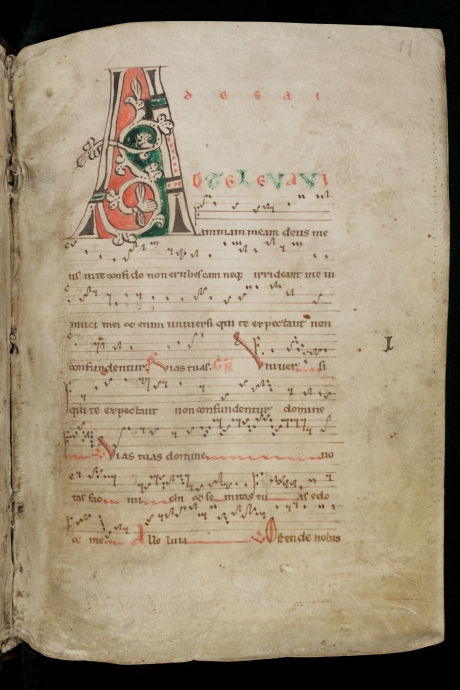 11
A
D TE LEVAVI
animam meam deus me
us in te confido non erubescam neqꝫ irrideant me in
imici mei et enim universi qui te expectant non
confundentur. Vias tuas. GR Univer si
I
qui te expectant non confundentur domine
Vias tuas domine no
tas fac mi chi et se mitas tu as edo
ce me. Alle luia Ostende nobis